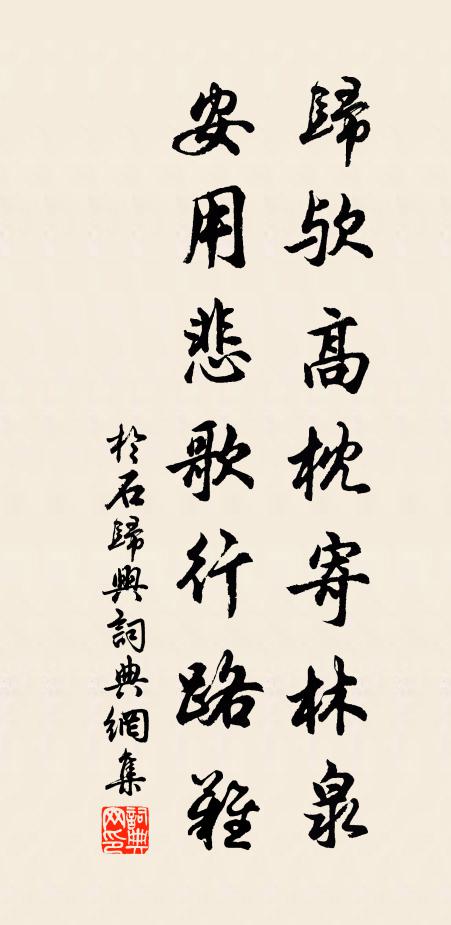 歸欤高枕寄林泉
安用悲歌行路難
於石歸興詞典網集
詞典
网印